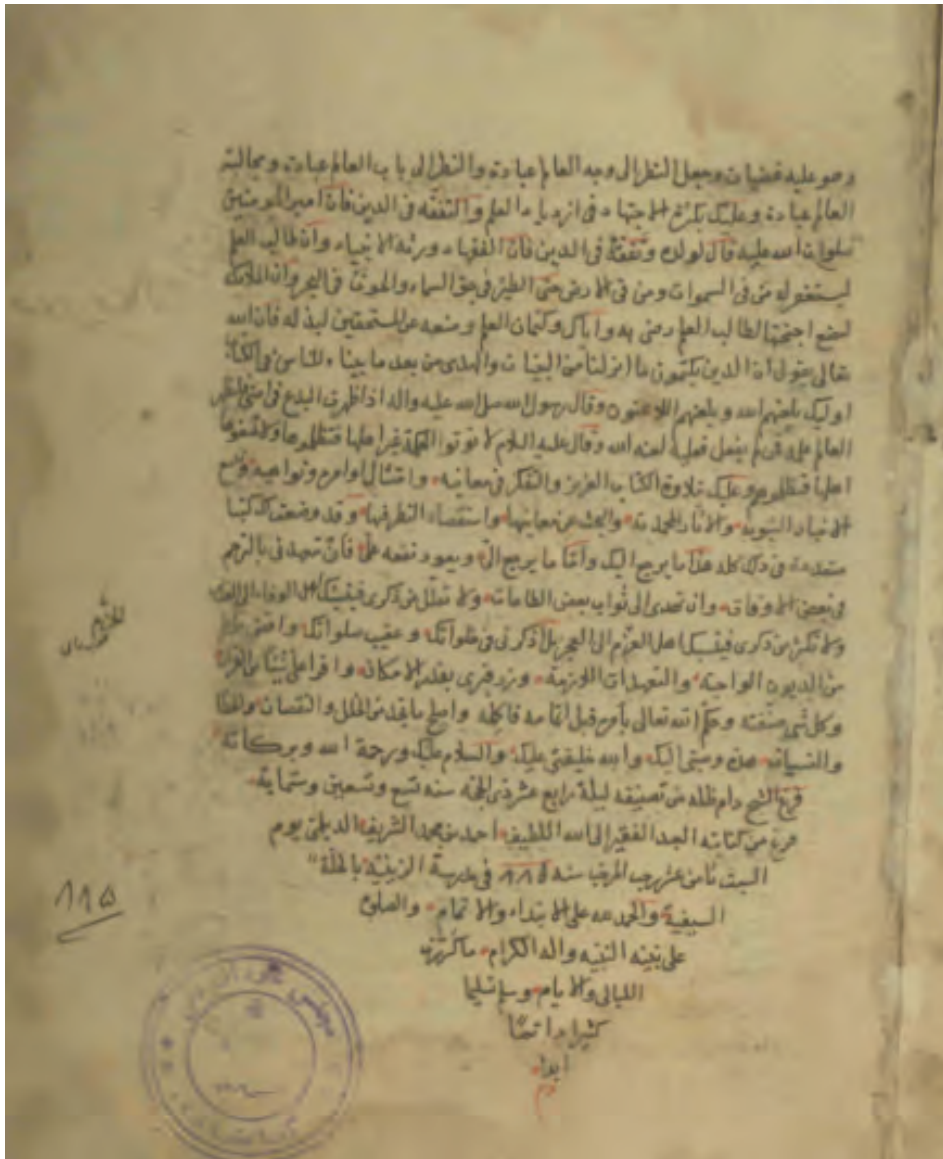 وهو عليه غضبان وجعل النظر الى وجه العالم عبادة والنظر الى باب العالم عبادة ومجالسة
العالم عبادة وعليك بكثرة الاجتهاد في ازدياد العلم والتفقه في الدين فان امير المومنين
صلوات الله عليه قال لولده وتفقه في الدين فان الفقهاء ورثة الانبياء وان طالب العلم
ليستغفر له من في السموات ومن في الارض حتى الطير في جو السماء والحوت في البحر وان الملائكة
لتضع اجنحتها لطالب العلم رضى به واياك وكتمان العلم ومنعه عن المستحقين لبذله فان الله
تعالى يقول ان الذين يكتمون ما انزلنا من البينات والهدى من بعد ما بيناه للناس في الكتاب
اوليك يلعنهم الله ويلعنهم اللاعنون وقال رسول الله صلى الله عليه واله اذا ظهرت البدع في امتي فليظهر
العالم علمه فمن لم يفعل فعليه لعنة الله وقال عليه السلام لا توتوا الحكمة غير اهلها فتظلموها ولا تمنعوها
اهلها فتظلموهم وعليك بتلاوة الكتاب العزيز والتفكر في معانيه وامتثال اوامره ونواهيه وتتبع
الاخبار النبوية والاثار المحمدية والبحث عن معانيها واستقصاء النظر فيها وقد وضعت لك كتبا
متعددة في ذلك كله هذا ما يرجع اليك واما ما يرجع الي ويعود نفعه علي فان تتعهدني بالترحم
في بعض الاوقات وان تهدي الي ثواب بعض الطاعات ولا تقلل من ذكرى فينسبك اهل الوفاء الى الغدر
ولا تكثر من ذكرى فينسبك اهل العزم الى العجز بل اذكرني في خلواتك وعقيب صلواتك واقض ما علي
من الديون الواجبة والتعهدات اللازمة وزر قبرى بقدر الامكان واقرا عليه شيئا من القران
وكل كتاب صنفته وحكم الله تعالى بامره قبل اتمامه فاكمله واصلح ما تجده من الخلل والنقصان والخطا
والنسيان هذه وصيتي اليك والله خليفتي عليك والسلام عليك ورحمة الله وبركاته
فرغ الشيخ دام ظله من تصنيفه ليلة رابع عشر ذي الحجة سنه تسع وتسعين وستماية
فرغ من كتابته العبد الفقير الى الله اللطيف احمد بن محمد الشريف يوم
السبت ثامن عشر رجب المرجب سنه في مدرسة الزينية بالحلة
السيفية والحمد لله على الابتداء والاتمام والصلوة
على نبيه النبيه واله الكرام ما كرّرت
الليالى والايام وسلم تسليما
كثيرا دائما
ابدا
١١٥